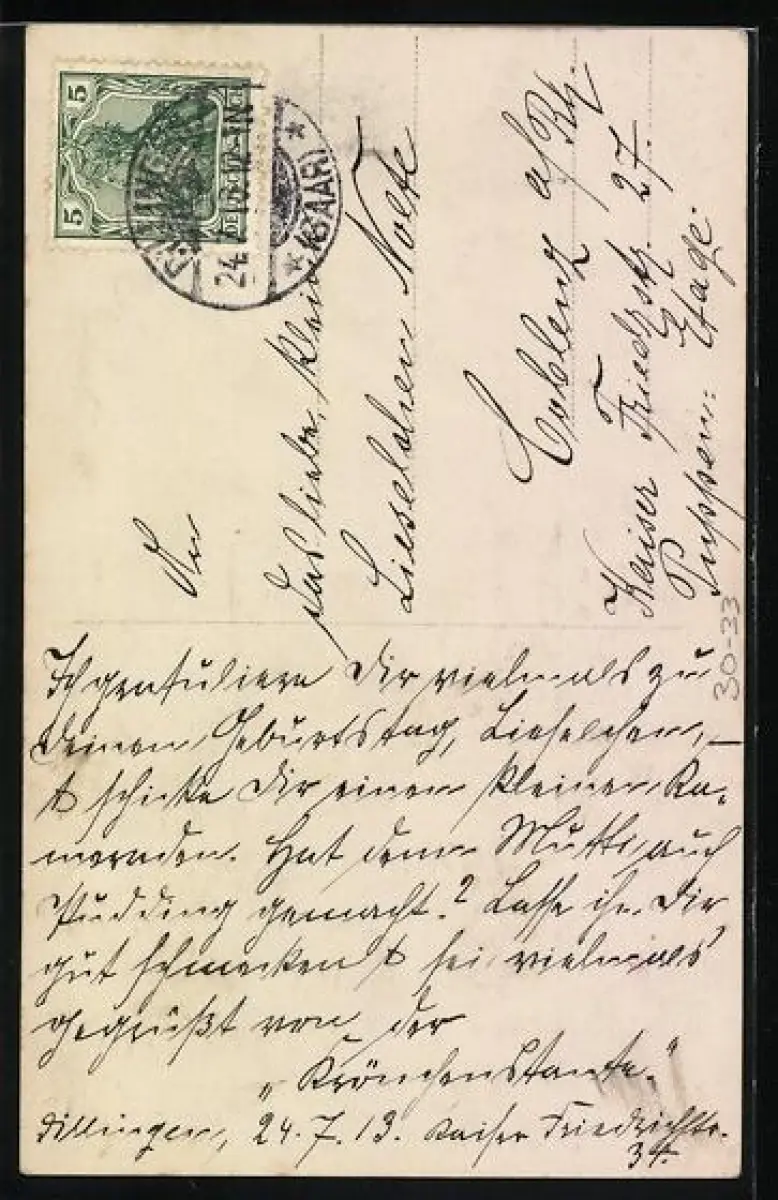 5 5
DILLINGEN
24.7.13.12-1N.
* (SAAR) *
An
das liebe, kleine
Lieselchen Nolte
Coblenz a/Rh.
Kaiser Friedrstr. 27.
Puppen: Etage.
30-33
Ich gratuliere Dir vielmals zu
Deinem Geburtstag, Lieselchen, –
& schicke Dir einen kleinen Ka-
meraden. Hat denn Mutti auch
Pudding gemacht? Lasse ihn Dir
gut schmecken & sei vielmals
gegrüßt von der
„Krönchenstante."
Dillingen, 24.7.13. Kaiser Friedrichstr.
34.